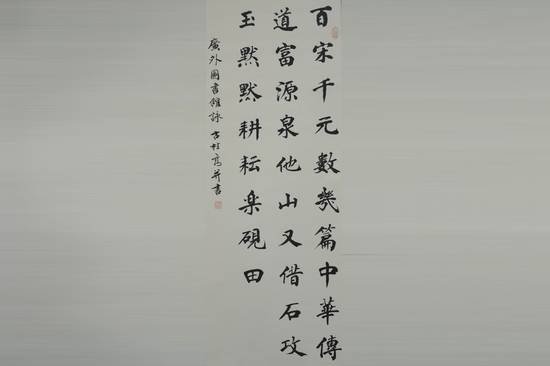 百宋千元數幾篇中華傳
道富源泉他山又借石攻
玉默默耕耘樂硯田
廣外圖書館詠 古桂高并書